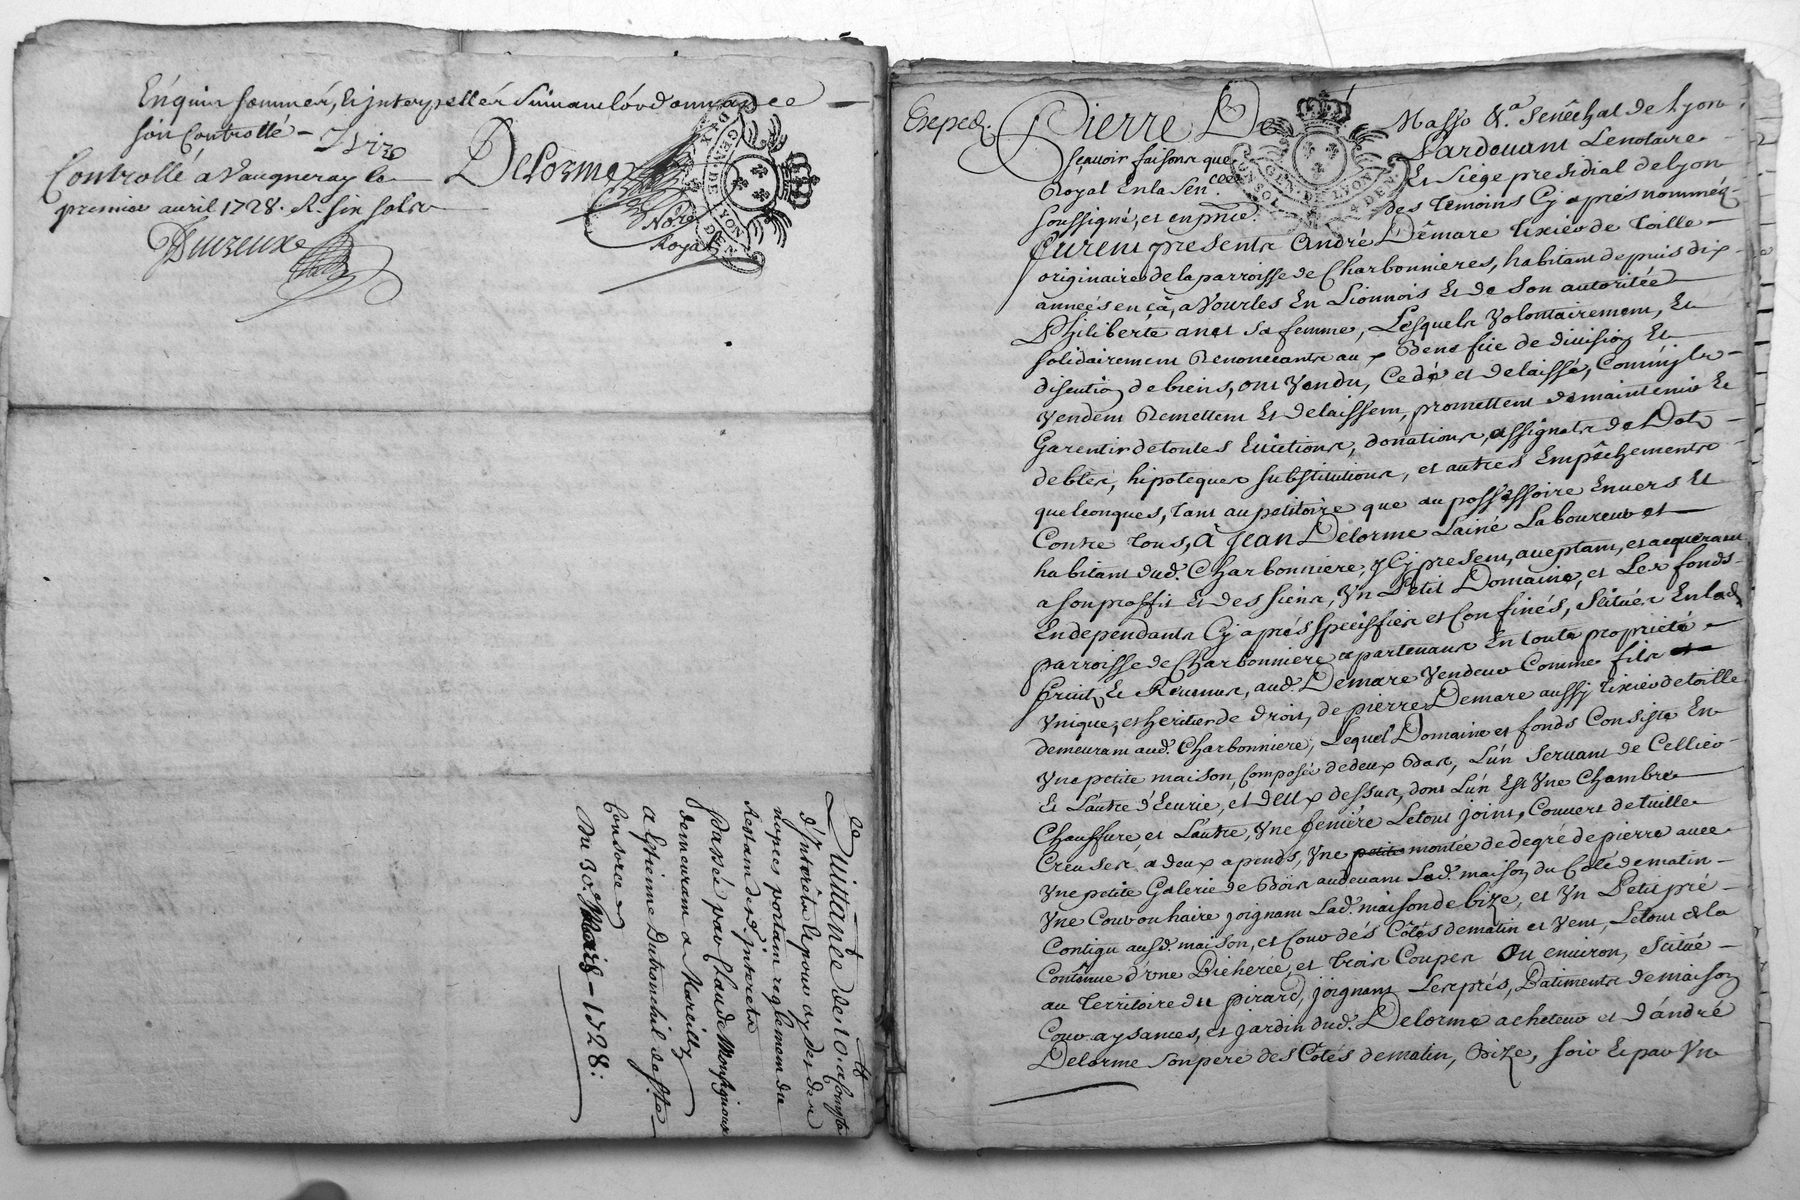 Enquis sommés, & interpellés suivant l'ordonnance
soit Controllé
Controllé a Vaugneray le
premier avril 1728. R. six sols
Delorme
No.re
Royal
GEN DE LYON
Quittance de
d'Interets
nopces portant reglement du
Restant desd. interets
Passé par Claude Monsignoux
demeurant a Marcilly
a Estienne Dutremchil de Ste
Consorce
Du 30.e Mars 1728.
Exped.
Pierre De Masso &.a Senéchal de Lyon
sçavoir faisons que Pardevant Le notaire
Royal En la Sen.cée Et Siège presidial de Lyon
soussigné, et en pnce. des temoins Cy aprés nommés
GEN DE LYON
furent presents André Démare tixier de toille
originaire de la parroisse de Charbonnieres, habitant depuis dix
années en ça, a Vourles En Lionnois Et de Son autoritée
Philiberte anet sa femme, Lesquels Volontairement, Et
solidairement Renonceants aux Benefice de division Et
discution de biens, ont Vendu, Cedé et delaissé, Comm'jls
Vendent Remettent Et delaissent, promettent de maintenir Et
Garentir de toutes Evictions, donations, assignats de Dot
debtes, hipoteques substitutions, et autres Empêchements
quelconques, tant au petitoire que au possessoire Envers Et
Contre tous, à Jean Delorme Lainé Laboureur et
habitant dud. Charbonniere, jCy present, acceptant, et acquerant
a son proffit Et des siens, Vn Petit Domaine, et Les fonds
En dependants Cy aprés specifiés et Confinés, Scitués En lad.
parroisse de Charbonniere apartenans En toute proprieté
fruits Et Revenus, aud. Demare Vendeur Comme fils
Vnique, et heritier de droit, de pierre Demare aussy tixier de toille
demeurant aud. Charbonniere, Lequel Domaine et fonds Consiste En
Vne petite maison, Composée de deux Bas, L'un Servant de Cellier
Et L'autre d'Ecurie, et deux dessus, dont L'un Est Vne Chambre
Chauffure et L'autre, Vne feniere Le tout joint, Couvert de tuille
Creuses, a deux apends, Vne petite montée de degré de pierre avec
Vne petite Galerie de Bois audevant Lad. maison du Coté de matin
Vne Cour ou haire joignant Lad. maison de bize, et Vn Petit pré
Contigu ausd. maison, et Cour des Côtés de matin et Vent, Le tout de la
Contenue d'vne Bicherée, et trois Coupes Ou environ, scitué
au Territoire du pirard, joignant Les prés, Batiments de maison
Cour aysances, et jardin dud. Delorme acheteur et d'André
Delorme Son pere des Côtés de matin, Bize, soir Et par Vn